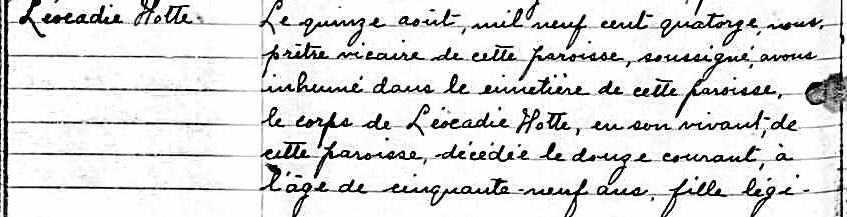 Léocadie Hotte.
Le quinze août, mil neuf cent quatorze, nous,
prêtre vicaire de cette paroisse, soussigné, avons
inhumé dans le cimetière de cette paroisse,
le corps de Léocadie Hotte, en son vivant, de
cette paroisse, décédée le douze courant, à
l'âge de cinquante-neuf ans, fille légi-